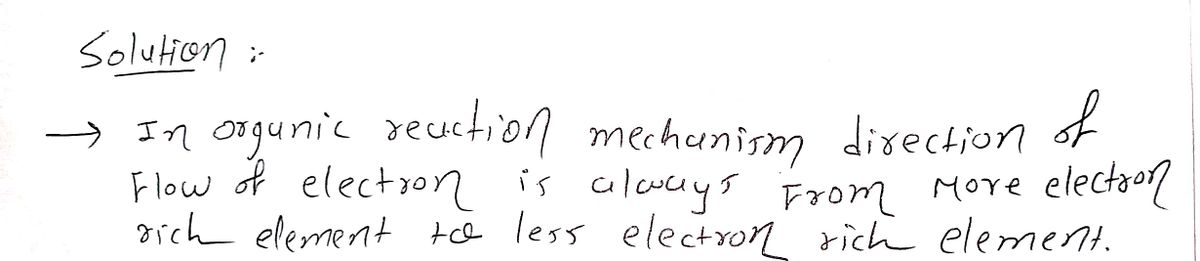 Solution :-
→ In organic reaction mechanism direction of
Flow of electron is always From More electron
rich element to less electron rich element.